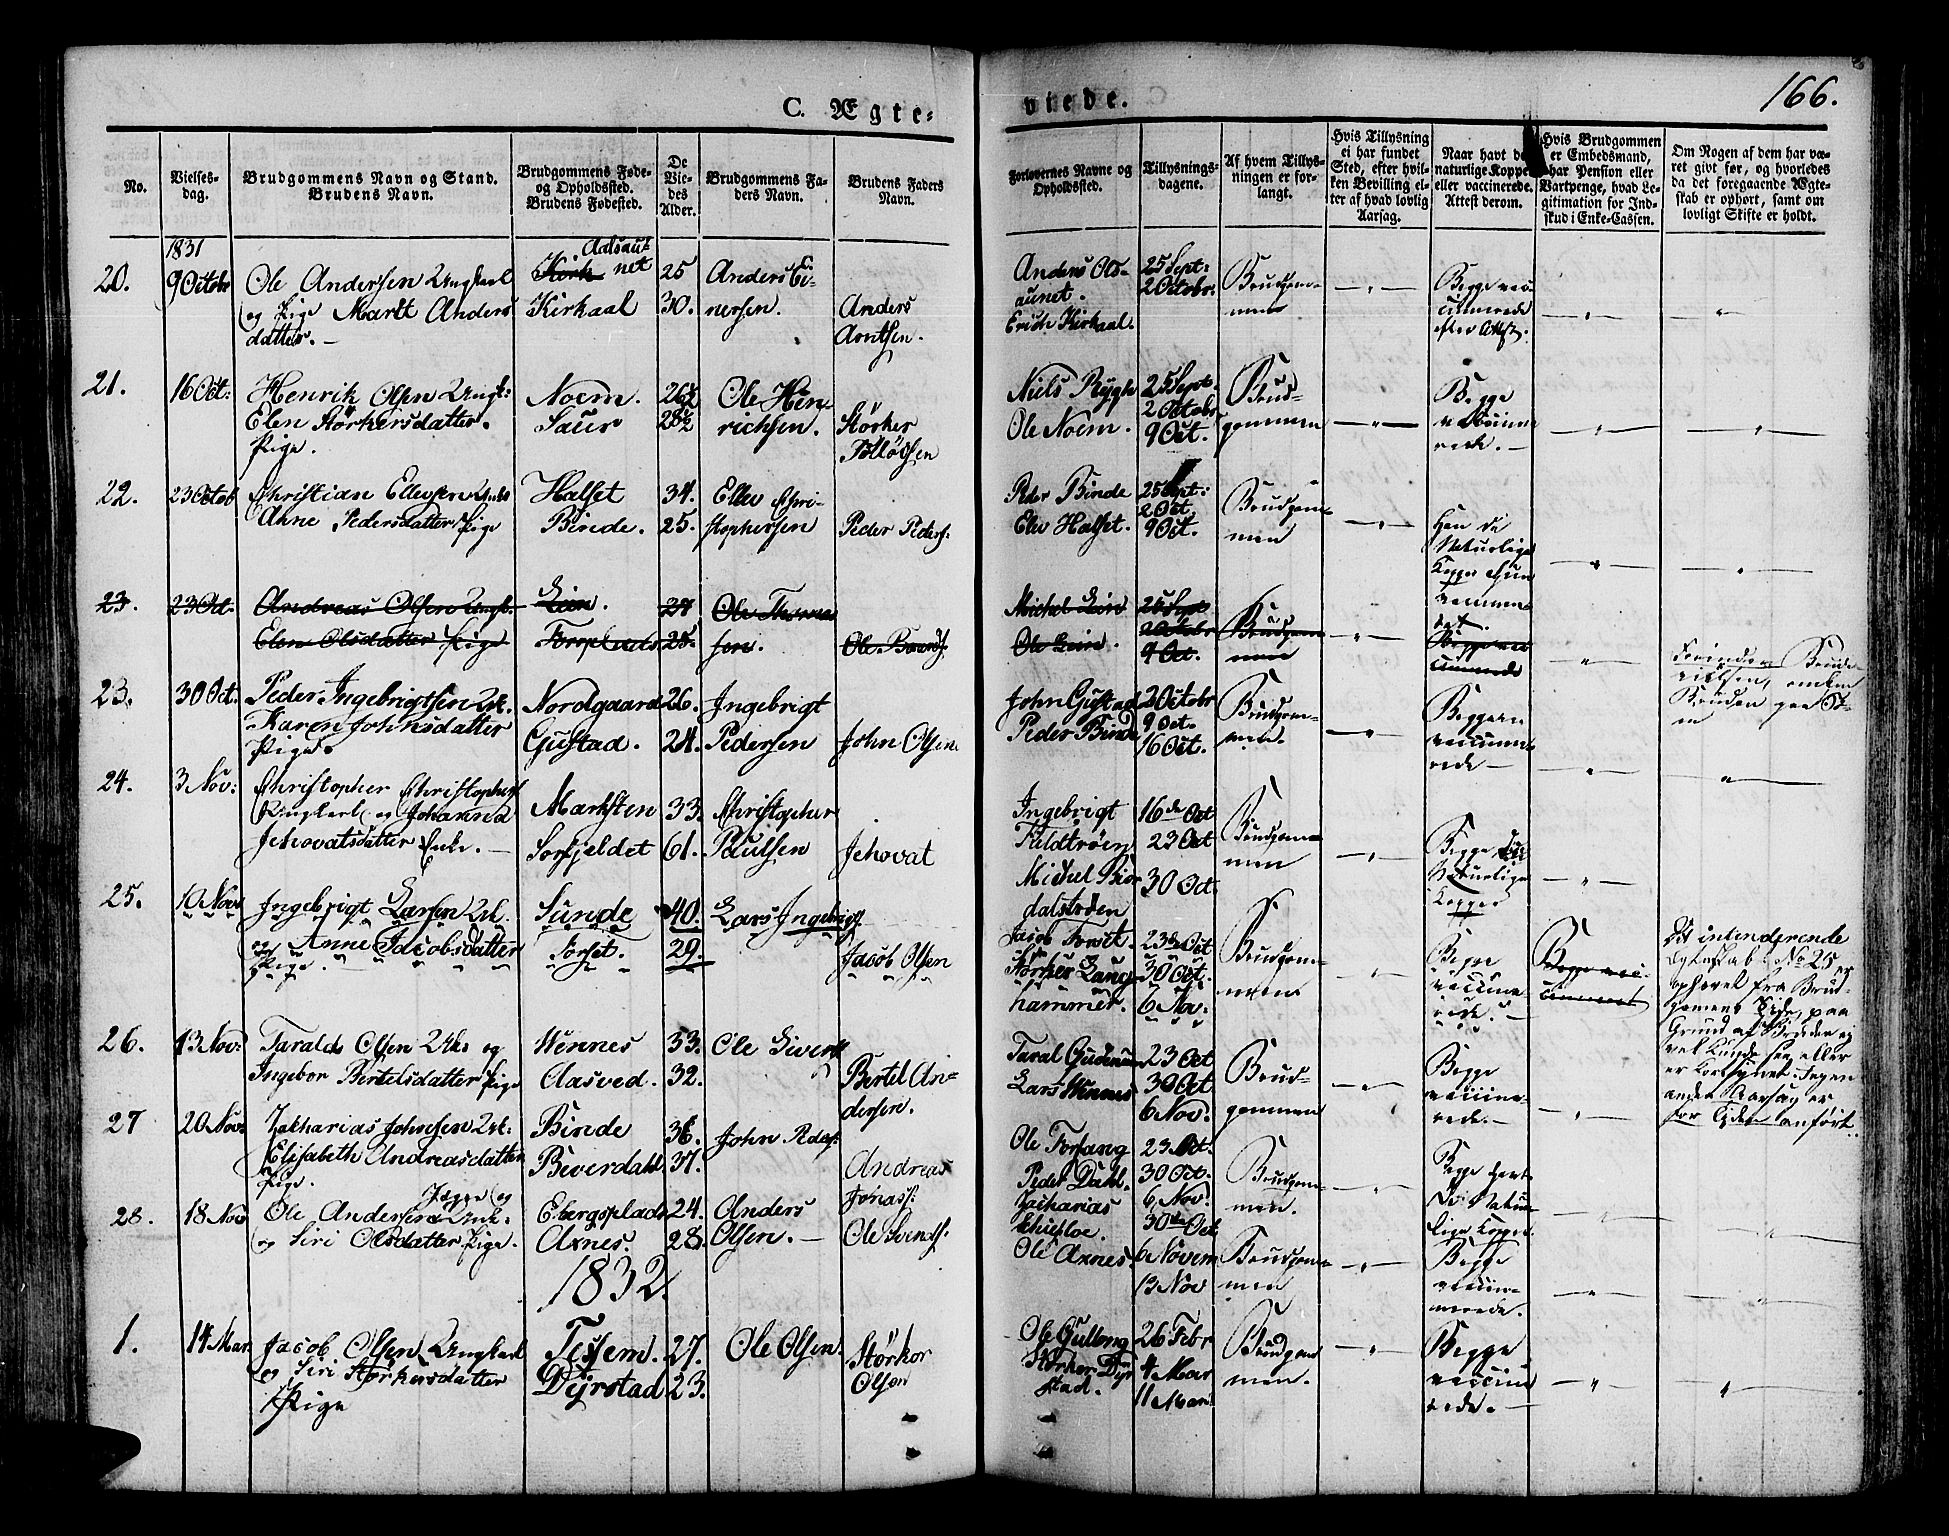 C. Ægte-
viede.
166.
No.
Vielses-
dag.
Brudgommens Navn og Stand.
Brudens Navn.
Brudgommens Føde-
og Opholdssted.
Brudens Fødested.
De
Vie-
des
Alder.
Brudgommens Fa-
ders Navn.
Brudens Faders
Navn.
Forlovernes Navne og
Opholdssted.
Tillysnings-
dagene.
Af hvem Tillys-
ningen er for-
langt.
Hvis Tillysning
ei har fundet
Sted, efter hvil-
ken Bevilling el-
ler af hvad lovlig
Aarsag.
Naar havt de
naturlige Kopper
eller vaccinerede.
Attest derom.
Hvis Brudgommen
er Embedsmand,
har Pension eller
Vartpenge, hvad Le-
gitimation for Ind-
skud i Enke-Cassen.
Om Nogen af dem har væ-
ret gift før, og hvorledes
da det foregaaende Ægte-
skab er ophørt, samt om
lovligt Skifte er holdt.
1831
20. 9 Octobr Ole Andersen Ungkarl
og Pige Marit Anders
datter. —
Aalsau-
Kirk net
Kirkaal
25
30.
Anders Ei-
nersen.
Anders
Arntsen.
Anders Als-
aunet.
Erich Kirkaal.
25 Sept:
2 Octobr:
Brudgom-
men
Begge vac-
cinerede
efter Attest.
21. 16 Oct: Henrik Olsen Ungk:
Elen Störkersdatter.
Pige.
Noem.
Saur
26½
28½
Ole Hen-
richsen.
Störker
Niels Rygh
Ole Noem.
25 Sept.
2 Octobr
9 Oct.
Brud-
gommen
Begge
vaccine-
rede. —
22. 23 Octob Christian Ellevsen Ungk
Anne Pedersdatter Pige
Halset
Binde.
34.
25.
Ellev Chri-
stophersen
Peder Peders:
Peder Binde
Elev Halset.
25 Sept:
2 Oct.
9 Oct.
Brudgom-
men
Han de
Naturlige
Kopper Hun
vaccine-
ret.
23. 23 Oct. Andreas Olsen Ungk.
Elen Olsdatter Pige
Lien.
Forsplads
27
25.
Ole Thomas
sen.
Michel Lein
Ole Lein.
25 Sept
2 Octobr
9 Oct.
Brudgom-
men
Begge vac
cinerede
23. 30 Oct. Peder Ingebrigtsen Uk.
Karen Johnsdatter
Pige.
Nordgaard
Gustad.
26.
24.
Ingebrigt
Pedersen
John Olsen
John Gustad
Peder Binde
2 Octobr
9 Oct.
16 Oct.
Brudgom-
men.
Begge
vaccine-
rede —
24. 3 Nov: Christopher Christophers
Ungkarl og Johanna
Jehovatsdatter Enke. —
Marksten
Sorfjeldet
33.
61.
Christopher
Paulsen
Jehovat
Ingebrigt
Fieldtröen
Michel Bior
dalströen
16de Oct
23 Oct
30 Oct.
Brudgom-
men
Begge de
Naturlige
Kopper
25. 10 Nov Ingebrigt Larsen Uk.
og Anne Jacobsdatter
Pige.
Sunde
Forset.
40.
29.
Lars Ingebrigts
Jacob Olsen
Jacob Forset.
Störker Lang
hammer.
23de Oct
30 Oct.
6 Nov.
Brudgom-
men
Begge
vaccine
rede. —
Begge vac-
cineret
Det intenderende
Egteskab No 25
ophævet fra Brud-
gomens Side, paa
Grund af Bruden ej
vel kunde see eller
er kortsynet. Ingen
anden Aarsag er
for Tiden anfört.
26. 13 Nov: Taralds Olsen Uk. og
Ingebor Bertelsdatter Pige
Wennes
Aasved.
33.
32.
Ole Siverts
Bertel An-
dersen.
Taral Gudmun
Lars Wennes
23 Oct
30 Oct
6 Nov.
Brud-
gommen
Begge
vaccine-
rede. —
27 20 Nov: Zacharias Johnsen Uk.
Elisabeth Andreasdatter
Pige.
Binde
Beverdahl
36.
37.
John Peders:
Andreas
Jonass:
Ole Forsang
Peder Dahl.
Zacharias
23 Oct.
30 Oct.
6 Nov.
Brudgom-
men.
Begge havt
De Natur-
lige Kopper
28. 18 Nov Ole Andersen Ungk.
og Siri Olsdatter Pige.
Ebergsplads
Axnes.
24.
28.
Anders
Olsen. —
Ole Svends:
Ole Axnes.
30te Oct
6 Novem
13 Nov
Brudgom-
men
Begge
vaccin-
nerede.
1832.
1. 14 Mar. Jacob Olsen Ungkarl
og Siri Störkersdatter
Pige
Tessem.
Dyrstad
27.
23.
Ole Olsen.
Störker
Olsen
Ole Gulling
Störker Dyr
stad.
26 Febr
4 Mar
11 Mar:
Brudgom
men.
Begge
vaccine
rede. —